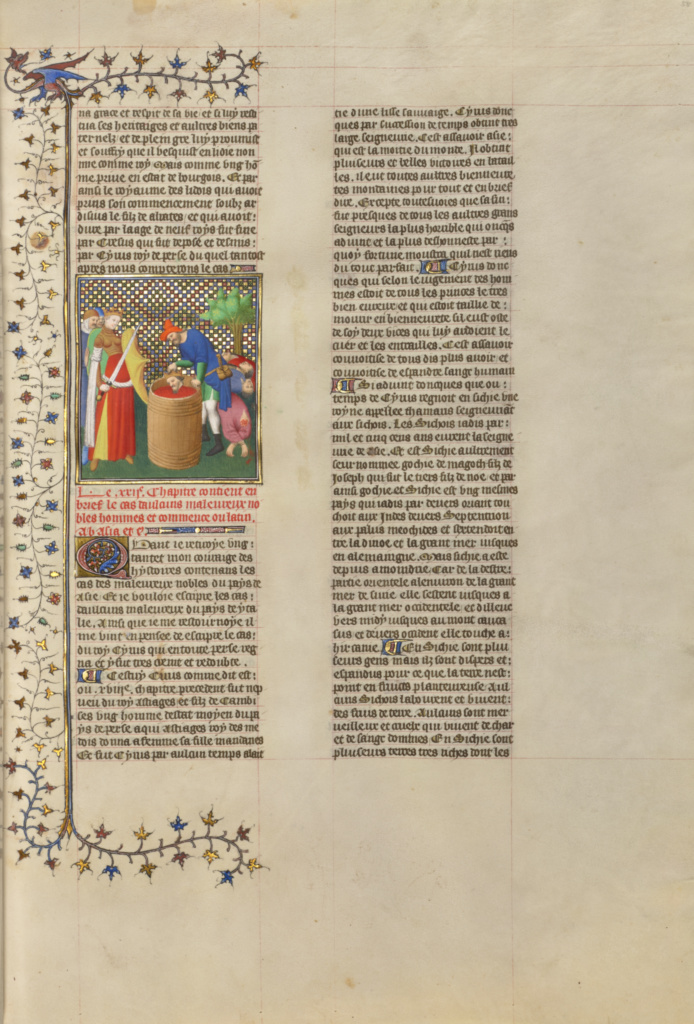 na grace et respit de sa vie et si luy resti
tua ses heritaiges et aultres biens pa
ternelz et de plein gre luy promist
et souffry que il vesquist en ioie non
mie comme roy Mais comme ung hom
me prive en estat de bourgois. Et par
ainsi le royaume des lidois qui avoit
prins son commencement soubz ar
disius le filz de aliates et qui avoit
dure par laage de neuf roys fut fine
par Cresus qui fut depose et desmis
par Cyrus roy de perse du quel tantost
apres nous compterons le cas
Le xxie. Chapitre contient en
brief le cas daulcuns maleureux no
bles hommes et commence ou latin.
Ab Asia et c
Quant ie renvoye ung
tantet mon couraige des
hystoires contenans les
cas des maleureux nobles du pays de
asie Et ie vouloie escripre les cas
daulcuns maleureux du pays de yta
lie. Ainsi que ie me restournoye il
me vint en pensee de escripre le cas
du roy Cyrus qui en toute perse reg
na et y fut tres craint et redoubte.
Cestuy Cirus comme dit est
ou xviiie. chapitre precedent fut nep
veu du roy astiages et filz de Cambi
ses ung homme destat moyen du pa
ys de perse a qui astiages roy des me
dois donna a femme sa fille mandanes
Et fut Cyrus par aulcun temps alait
tie dune lisse sauvaige. Cyrus donc
ques par succession de temps obtint tres
large seigneurie. Cest assavoir asie
qui est la moitie du monde. Il obtint
pluseurs et belles victoires en batail
les. il eut toutes aultres bieneuretez
tes mondaines pour tout en brief
dire. Excepte toutesvoies que sa fin
fut presques de tous les aultres grans
seigneurs la plus horrible qui oncques
advint et la plus deshonneste par
quoy fortune monstra quil nest riens
du tout parfait. Cyrus donc
ques qui selon le iugement des hom
mes estoit de tous les princes le tres
bien eureux et qui estoit taille de
mourir en bieneurete sil eust oste
de soy deux vices qui luy ardoient le
cuer et les entrailles. Cest assavoir
couvoitise de tous dis plus avoir et
couvoitise de espandre sang humain
Si advint doncques que ou
temps de Cyrus regnoit en sichie une
royne appellee thamaris seigneurissant
aux sichois. Les Sichois iadis par
mil et cinq cens ans eurent la seigne
urie de Asie. Et est Sichie aultrement
seurnommee gochie de magoth filz de
Joseph qui fut le tiers filz de noe. et par
ainsi gochie et Sichie est ung mesmes
pays qui iadis par devers oriant tou
choit aux Indes devers Septemtrion
aux palus meochides et sestendoit en
tre la dinoe et la grant mer iusques
en alemaigne. Mais sichie a este
depuis amoindrie Car de la destre
partie orientele alenviron de la grant
mer de sinie elle sestent iusques a
la grant mer occidentele et dilleuc
vers midy iusques au mont cauca
sus et devers occident elle touche a
hircanie. En Sichie sont plu
seurs gens mais ilz sont dispers et
espandus pour ce que la terre nest
point en fruis planteureuse Aul
cuns Sichois labourent et vivent
des fruis de terre. Aulcuns sont mer
veilleux et cruelz qui vivent de char
et de sange dommes En Sichie sont
pluseurs terres tres riches dont les